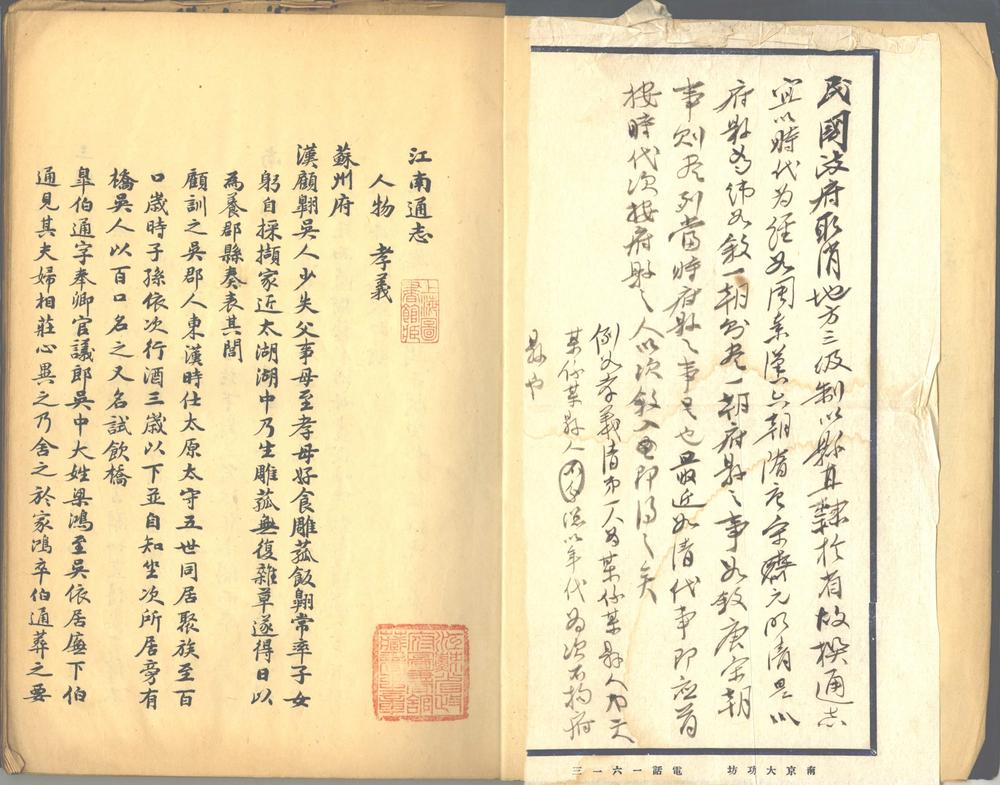 民國政府取消地方三級制以縣直隸於省故撰通志
宜以時代為經如周秦漢六朝隋唐宋元明清是以
府縣為緯如敘一朝則盡一朝府縣之事如敘唐宋朝
事則盡列當時府縣之事是也最近如清代事即應首
按時代次按府縣之人以次敘入即得之矣
例如孝義清第一人為某府某縣人
某府某縣人總以年代為次不拘府
縣也
南京大功坊 電話一六一三
江南通志
人物 孝義
上海圖書館藏
蘇州府
漢顧翺吳人少失父事母至孝母好食雕菰飯翺常率子女
躬自採擷家近太湖湖中乃生雕菰無復雜草遂得日以
為養郡縣奏表其閭
顧訓之吳郡人東漢時仕太原太守五世同居聚族至百
口歲時子孫依次行酒三歲以下並自知坐次所居旁有
橋吳人以百口名之又名試飲橋
皐伯通字奉卿官議郎吳中大姓梁鴻至吳依居廡下伯
通見其夫婦相莊心異之乃舍之於家鴻卒伯通葬之要